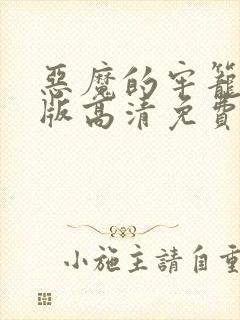 惡魔的牢籠
版高清免費
小施主請自重